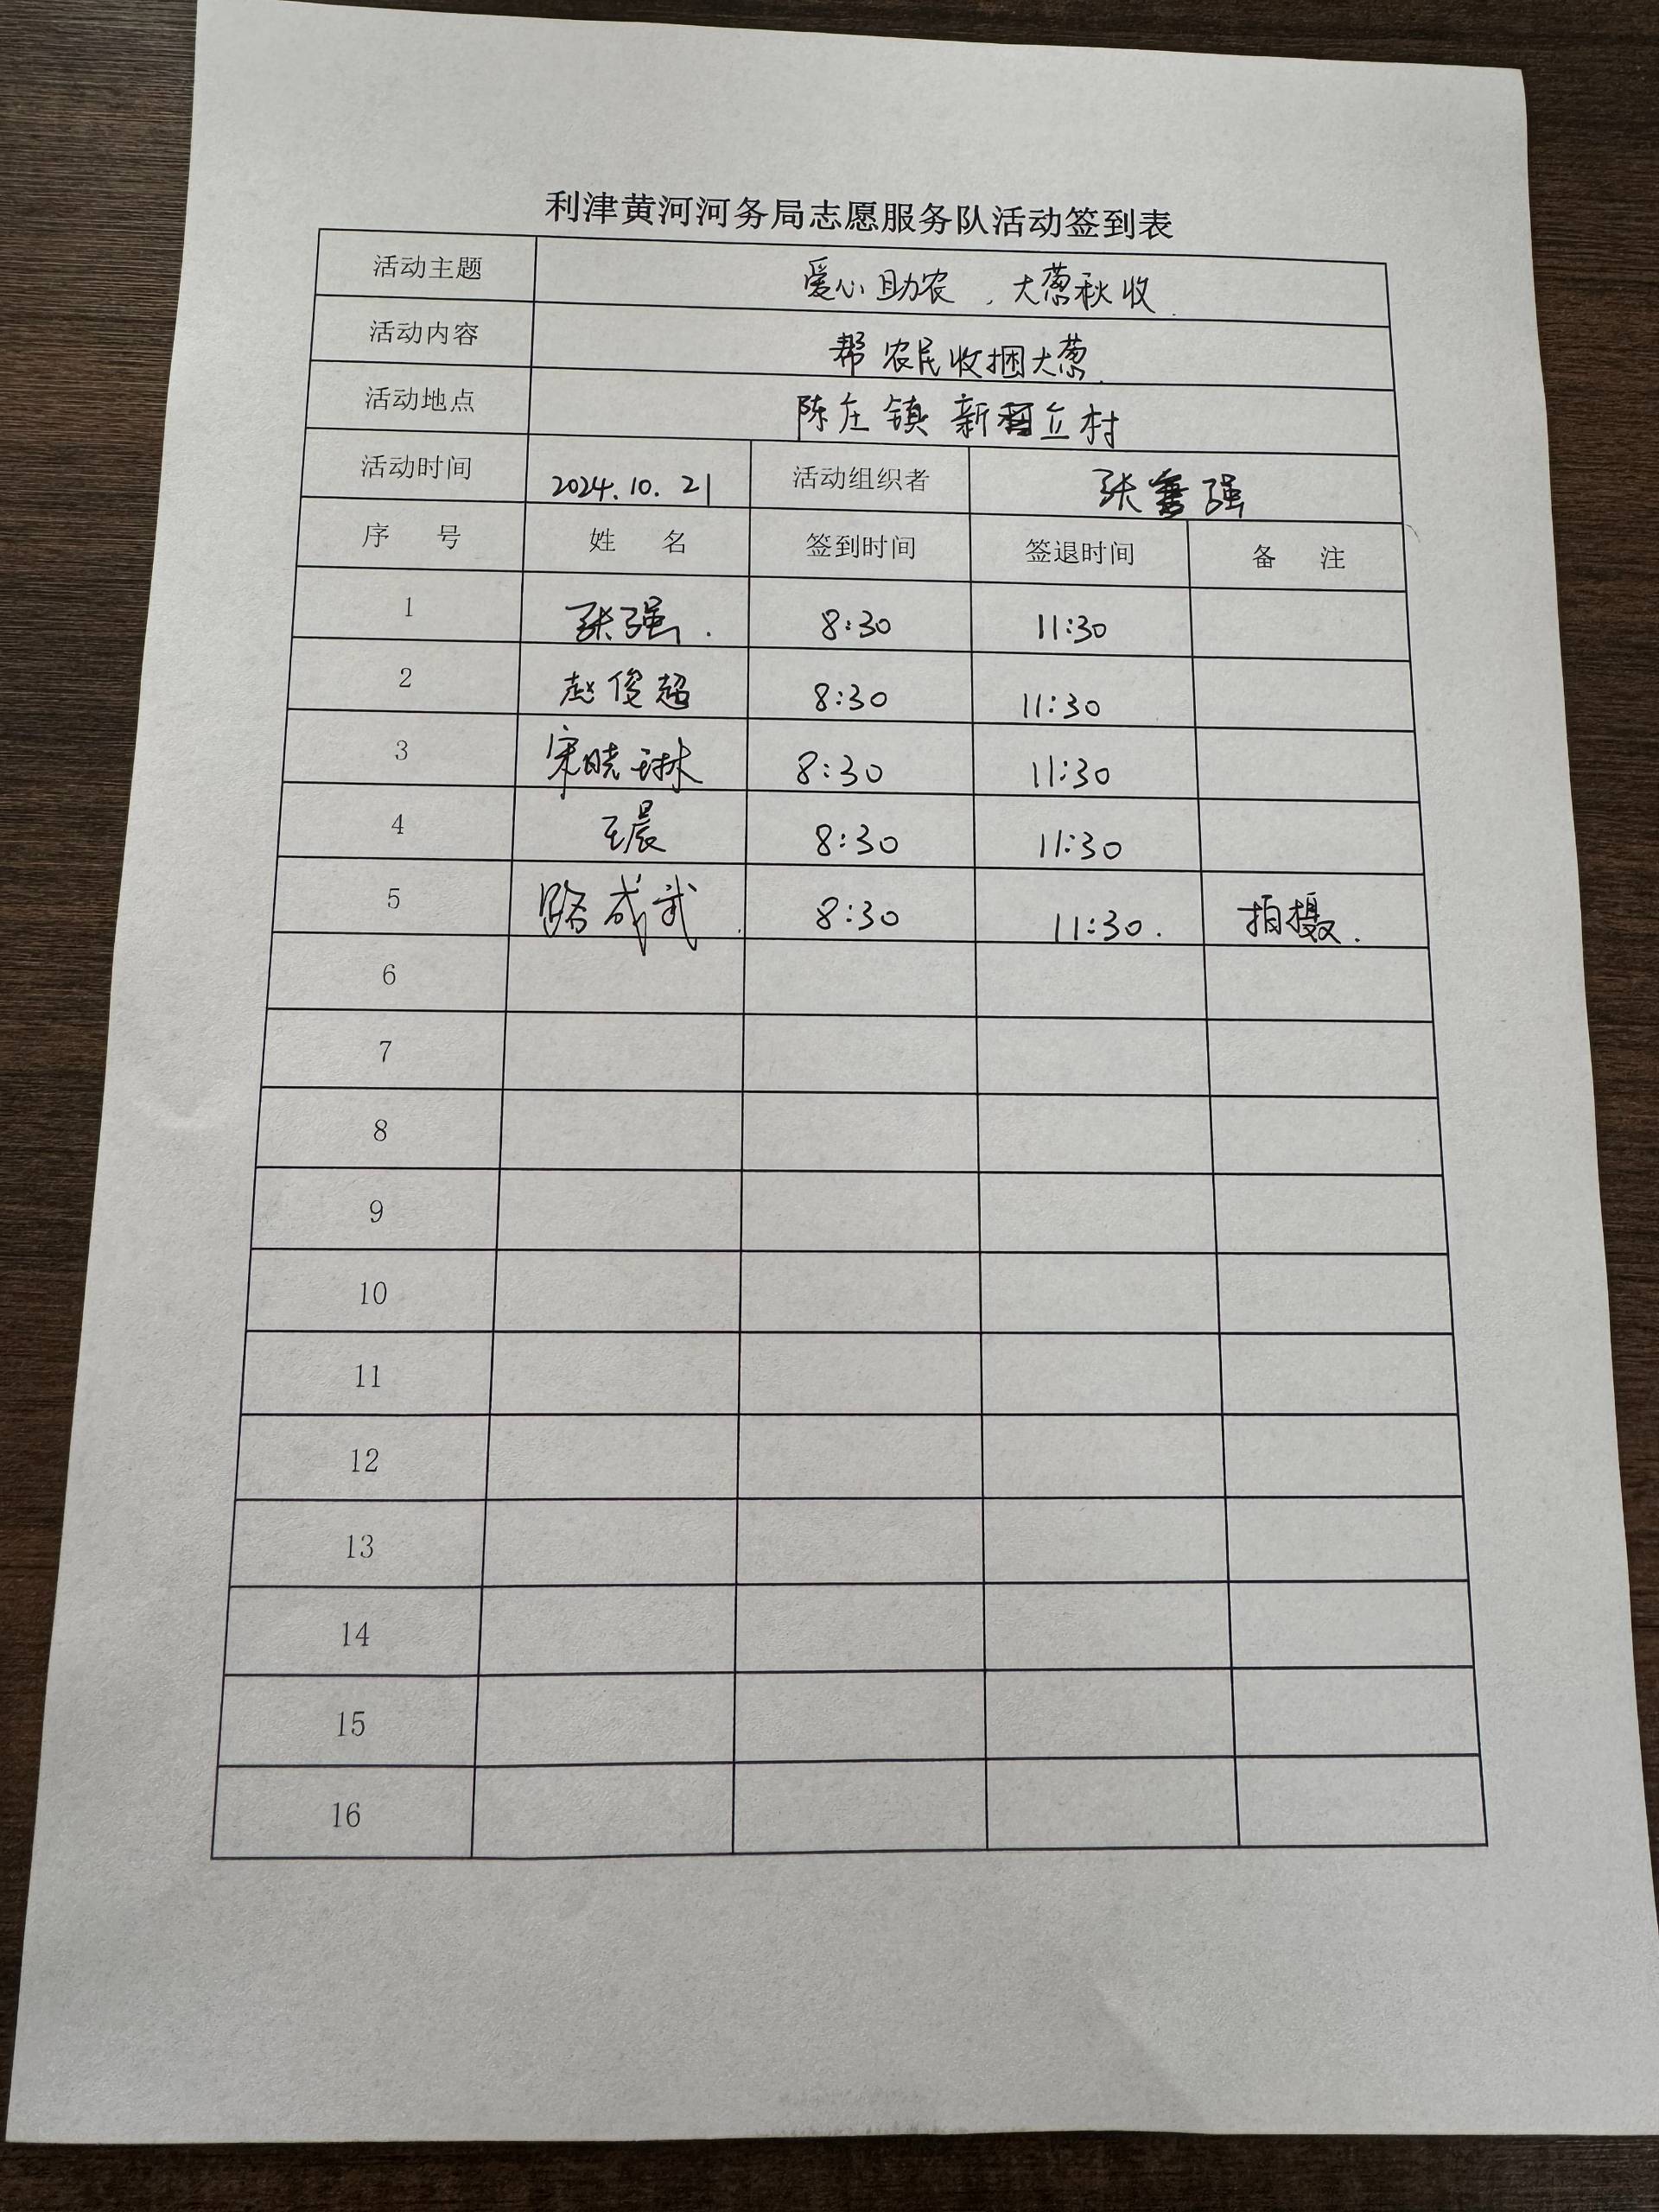 利津黄河河务局志愿服务队活动签到表
活动主题 爱心助农，大葱秋收
活动内容 帮农民收捆大葱.
活动地点 陈庄镇新立村
活动时间 2024.10.21 活动组织者 张强
序 号 姓 名 签到时间 签退时间 备 注
1 张强. 8:30 11:30
2 赵俊超 8:30 11:30
3 宋晓琳 8:30 11:30
4 王晨 8:30 11:30
5 路成武. 8:30 11:30. 拍摄.
6
7
8
9
10
11
12
13
14
15
16